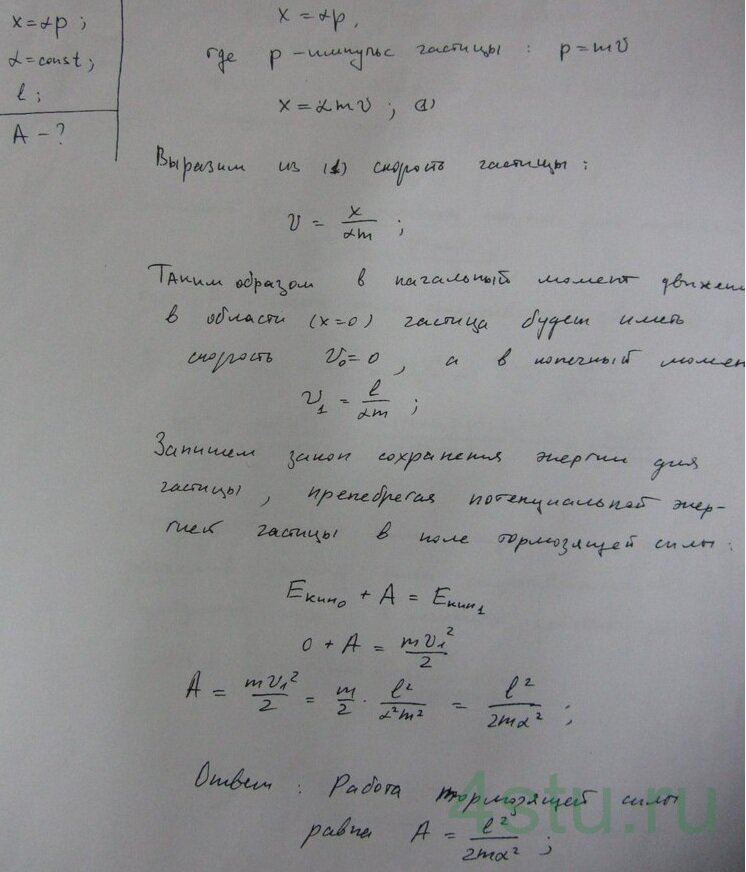 x=αp ;
α=const ;
l ;
A - ?
x=αp,
где p - импульс частицы : p=mv
x=αmv ; (1)
Выразим из (1) скорость частицы :
v = x/αm ;
Таким образом в начальный момент движен
в области (x=0) частица будет иметь
скорость v₀=0, а в конечный момен
v₁ = l/αm ;
Запишем закон сохранения энергии для
частицы, пренебрегая потенциальной энер-
гией частицы в поле тормозящей силы :
Eкин₀ + A = Eкин₁
0 + A = mv₁²/2
A = mv₁²/2 = m/2 · l²/α²m² = l²/2mα² ;
Ответ : Работа тормозящей силы
равна A = l²/2mα² ;
4stu.ru